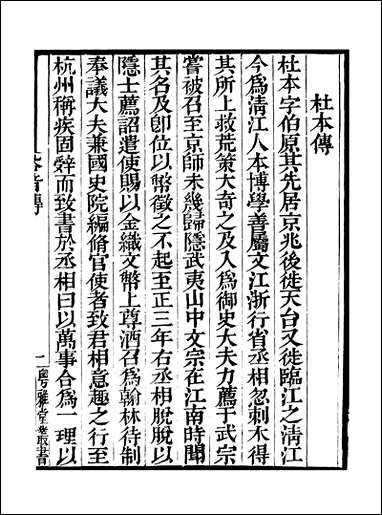 杜本傳
杜本字伯原其先居京兆後徙天台又徙臨江之淸江
今爲淸江人本博學善屬文江浙行省丞相忽剌木得
其所上救荒策大奇之及入爲御史大夫力薦于武宗
嘗被召至京師未幾歸隱武夷山中文宗在江南時聞
其名及卽位以幣徵之不起至正三年右丞相脫脫以
隱士薦詔遣使賜以金織文幣上尊酒召爲翰林待制
奉議大夫兼國史院編脩官使者致君相意趣之行至
杭州稱疾固辤而致書於丞相曰以萬事合爲一理以
一
粵雅堂叢書